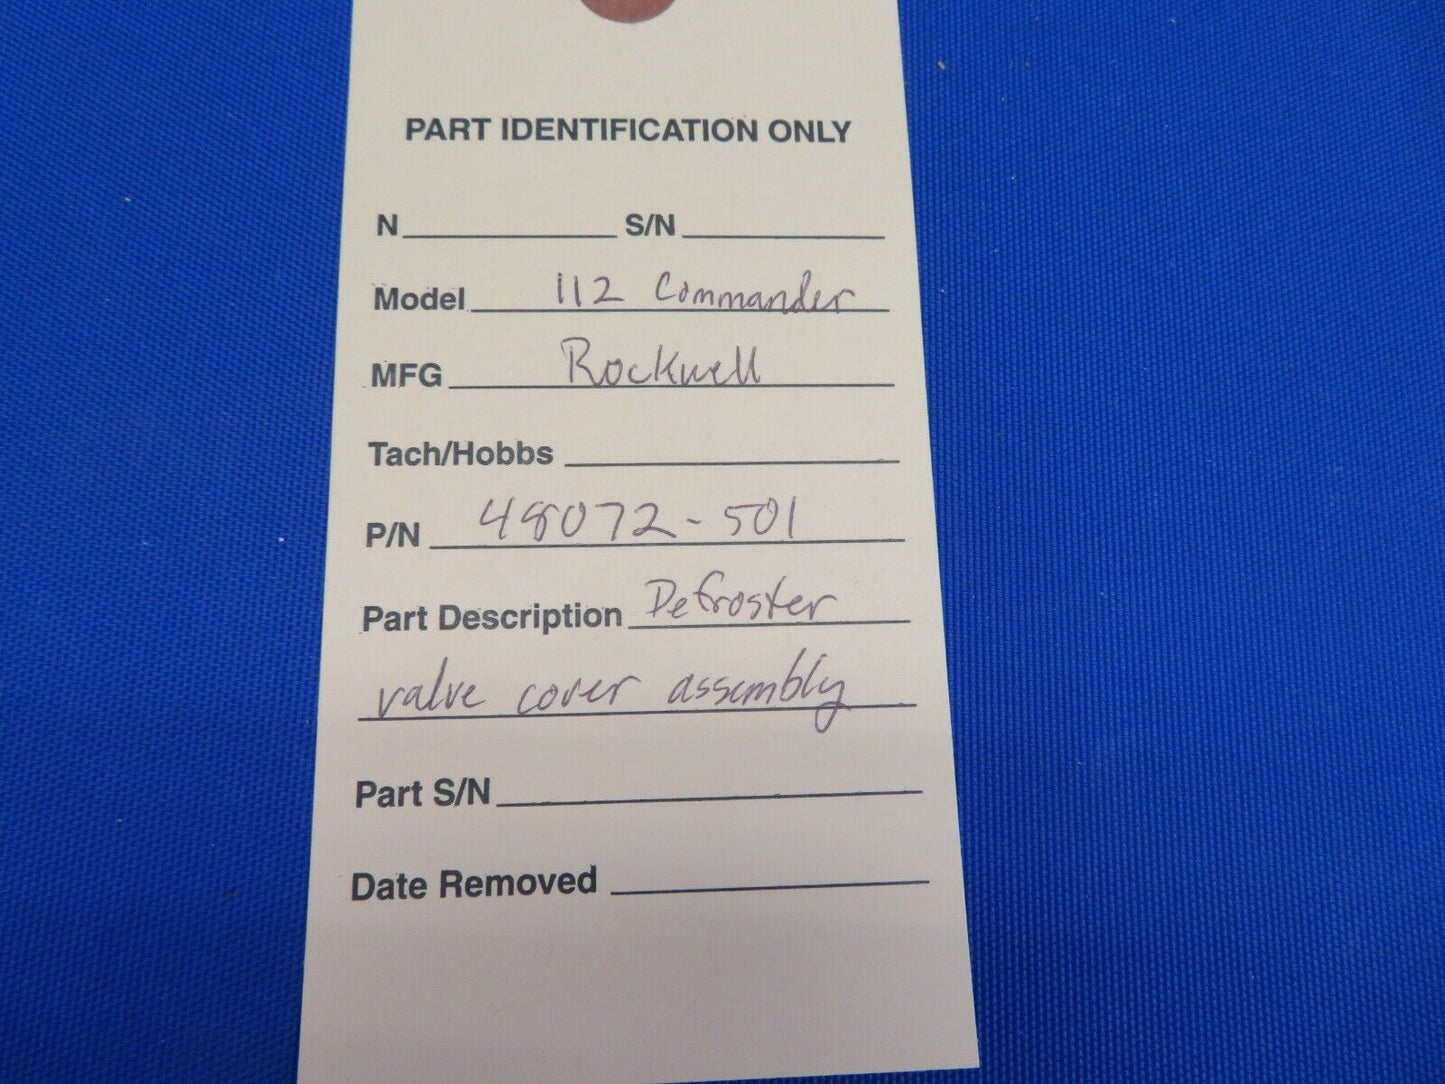 PART IDENTIFICATION ONLY
N S/N
Model 112 Commander
MFG Rockwell
Tach/Hobbs
P/N 48072-501
Part Description Defroster
valve cover assembly
Part S/N
Date Removed